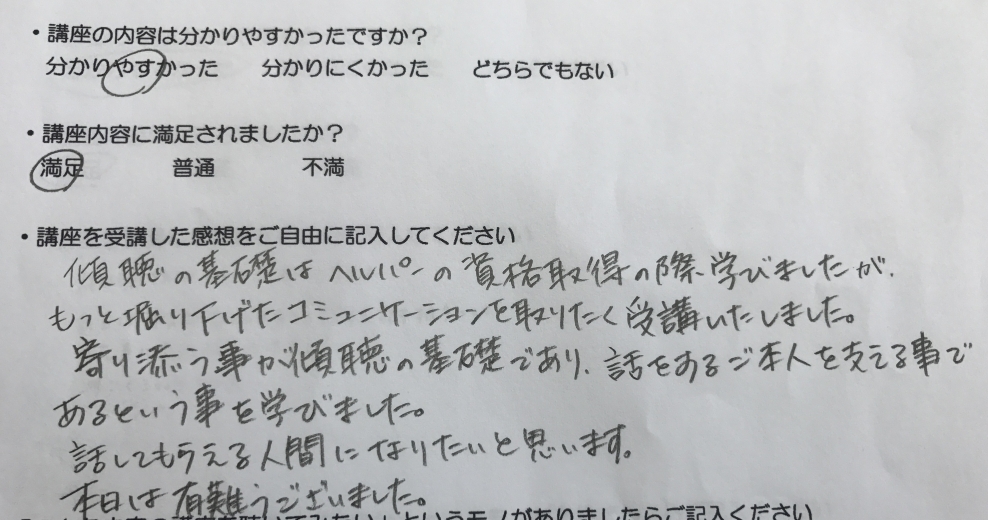 ・講座の内容は分かりやすかったですか?
分かりやすかった 分かりにくかった どちらでもない
・講座内容に満足されましたか?
満足 普通 不満
・講座を受講した感想をご自由に記入してください
傾聴の基礎はヘルパーの資格取得の際学びましたが、
もっと堀り下げたコミュニケーションを取りたく受講いたしました。
寄り添う事が傾聴の基礎であり、話をするご本人を支える事で
あるという事を学びました。
話してもらえる人間になりたいと思います。
本日は有難うございました。
というモノがありましたらご記入ください